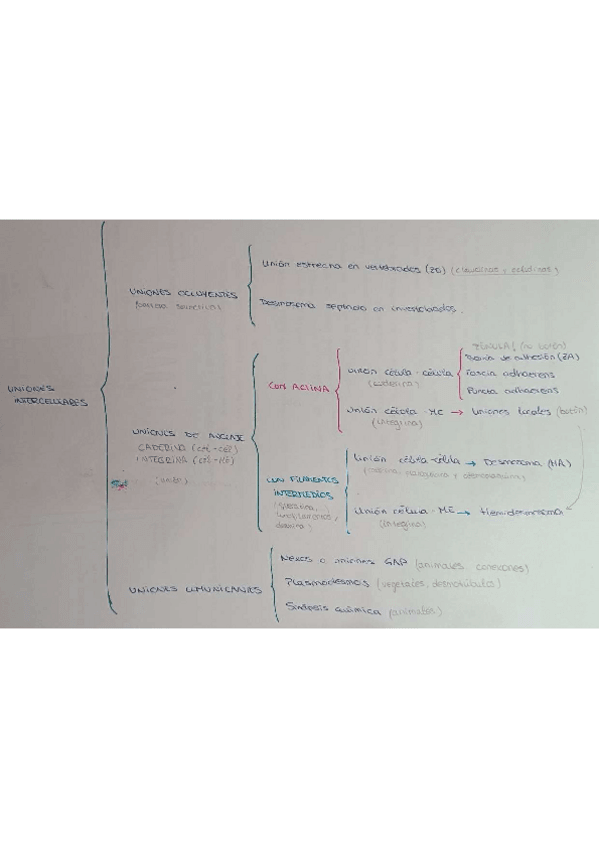 UNIONES
INTERCELULARES
UNIONES OCLUYENTES
(barrera selectiva)
Unión estrecha en vertebrados (ZO) (claudinas y ocludinas)
Desmosoma septado en invertebrados.
UNIONES DE ANCLAJE
CADERINA (cél-cél)
INTEGRINA (cél-ME)
CON ACTINA
Unión célula-célula
(caderina)
PLACAS (no botón)
Banda de adhesión (ZA)
Fascia adhaerens
Puncta adhaerens
Unión célula-ME → Uniones focales (botón)
(integrina)
CON FILAMENTOS
INTERMEDIOS
Unión célula-célula → Desmosoma (MA)
Unión célula-ME → Hemidesmosoma
(integrina)
UNIONES COMUNICANTES
Nexos o uniones GAP (animales, conexones)
Plasmodesmos (vegetales, desmotúbulos)
Sinapsis química (animales)